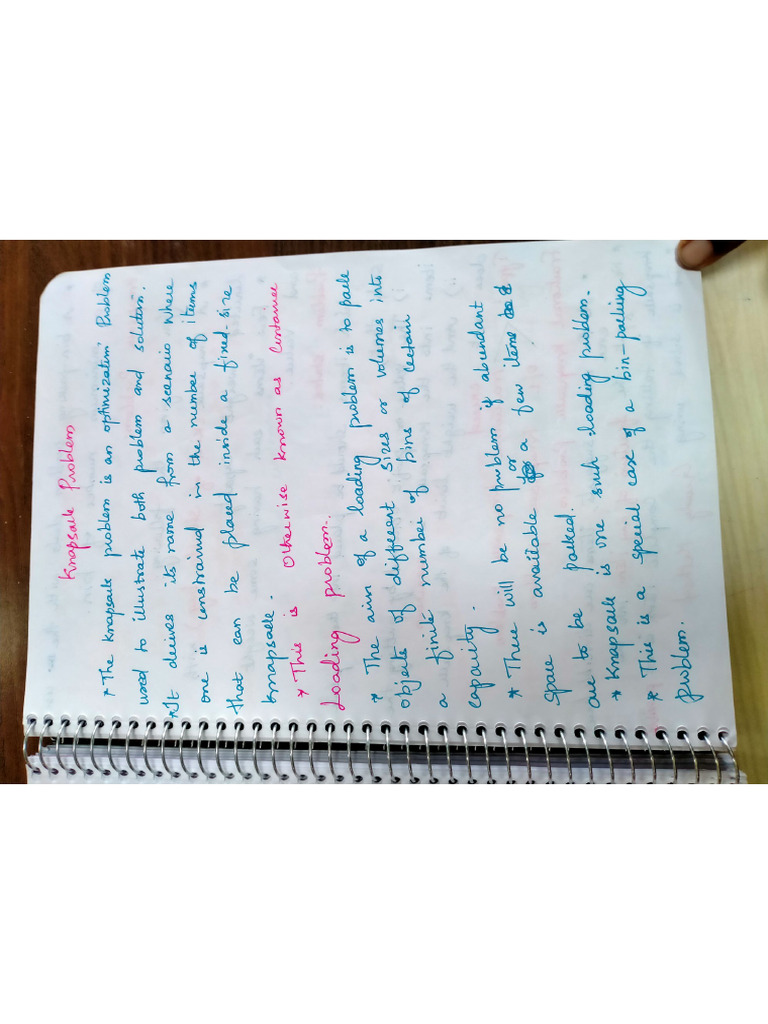 Knapsack Problem
* The knapsack problem is an optimization Problem
used to illustrate both problem and solution.
* It derives its name from a scenario where
one is constrained in the number of items
that can be placed inside a fixed-size
knapsack.
* This is otherwise known as Container
Loading problem.
* The aim of a loading problem is to pack
objects of different sizes or volumes into
a finite number of bins of certain
capacity.
* There will be no problem if abundant
space is available for a few items
are to be packed.
* Knapsack is one such loading problem.
* This is a special case of a bin-packing
problem.